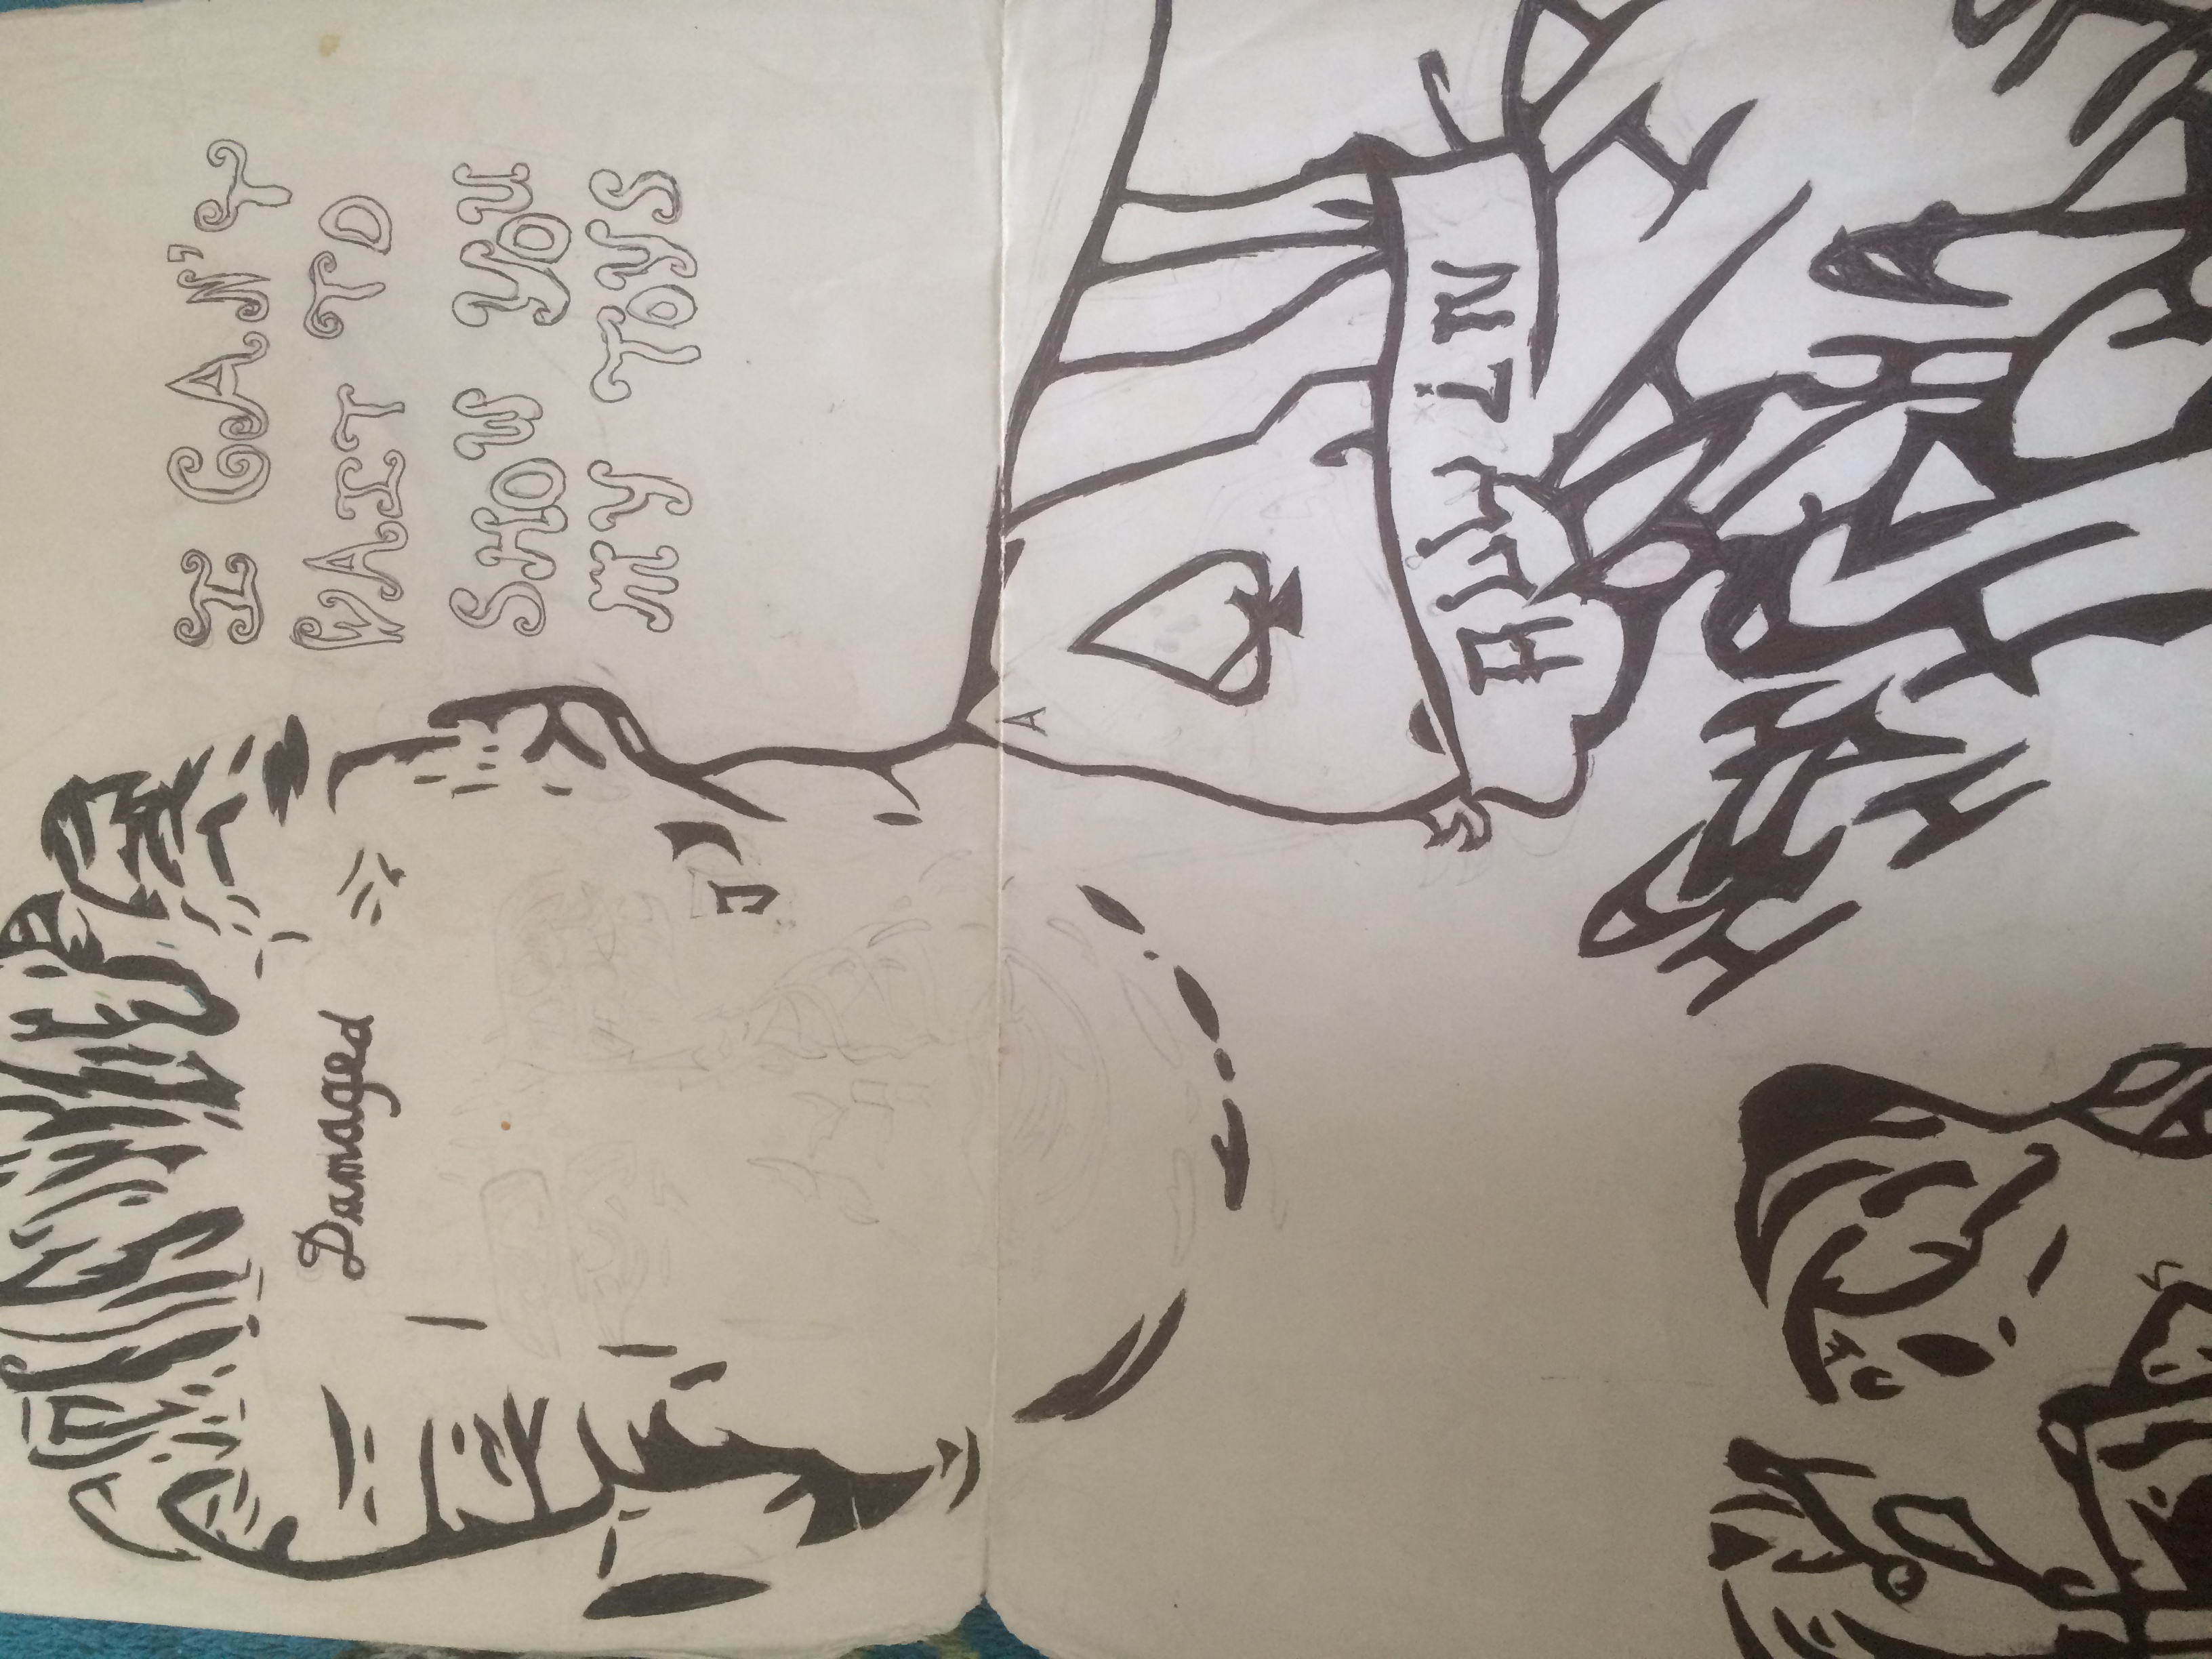 Damaged
I CAN'T
WAIT TO
SHOW YOU
MY TOYS
A
ALL IN
HA
HA
HA
HA
HA
HA